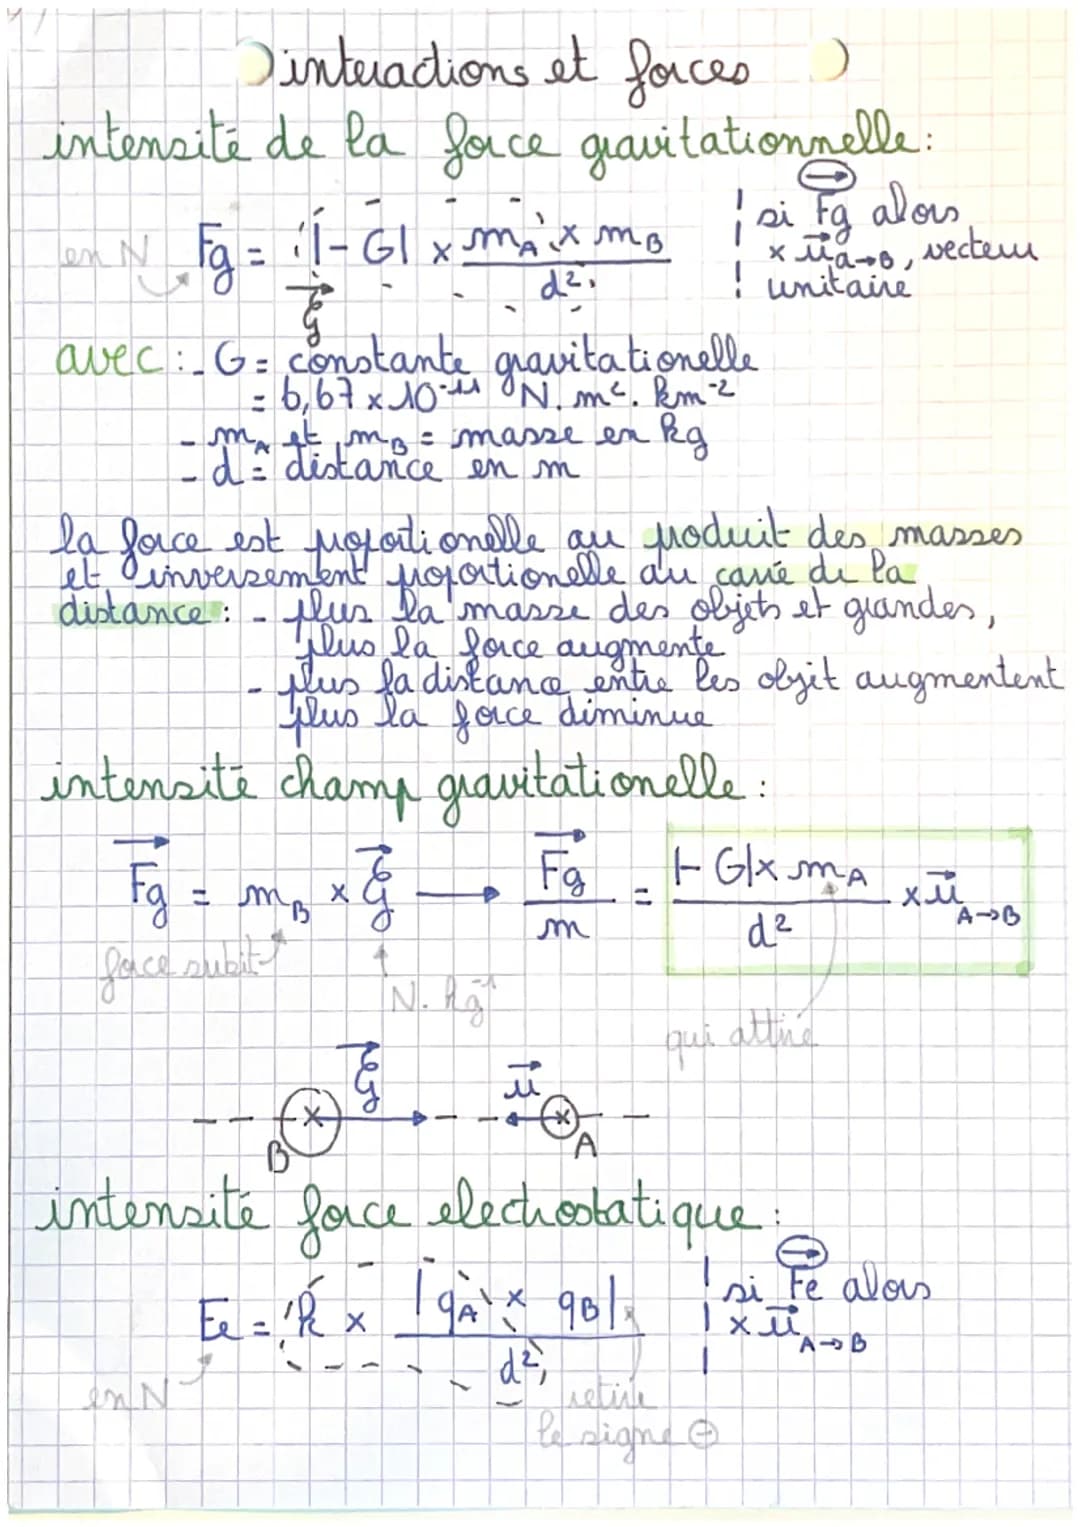 interactions et forces
intensité de la force gravitationnelle :
en N Fg = |-G| × mA × mB / d²
G
si Fg alors
× u A→B, vecteur
unitaire
avec : - G = constante gravitationelle
= 6,67 × 10⁻¹¹ N. m². km⁻²
- mA et mB = masse en kg
- d = distance en m
la force est proportionelle au produit des masses
et inversement proportionelle au carré de la
distance : - plus la masse des objets et grandes,
plus la force augmente
- plus la distance entre les objit augmentent
plus la force diminue
intensité champ gravitationelle :
Fg = mB × G → Fg / m = |-G| × mA / d² × u A→B
force subit
N. kg⁻¹
qui attire
G u
B A
intensité force electrostatique :
Fe = k × |qA × qB| / d²
si Fe alors
× u A→B
en N
retire
le signe ⊖